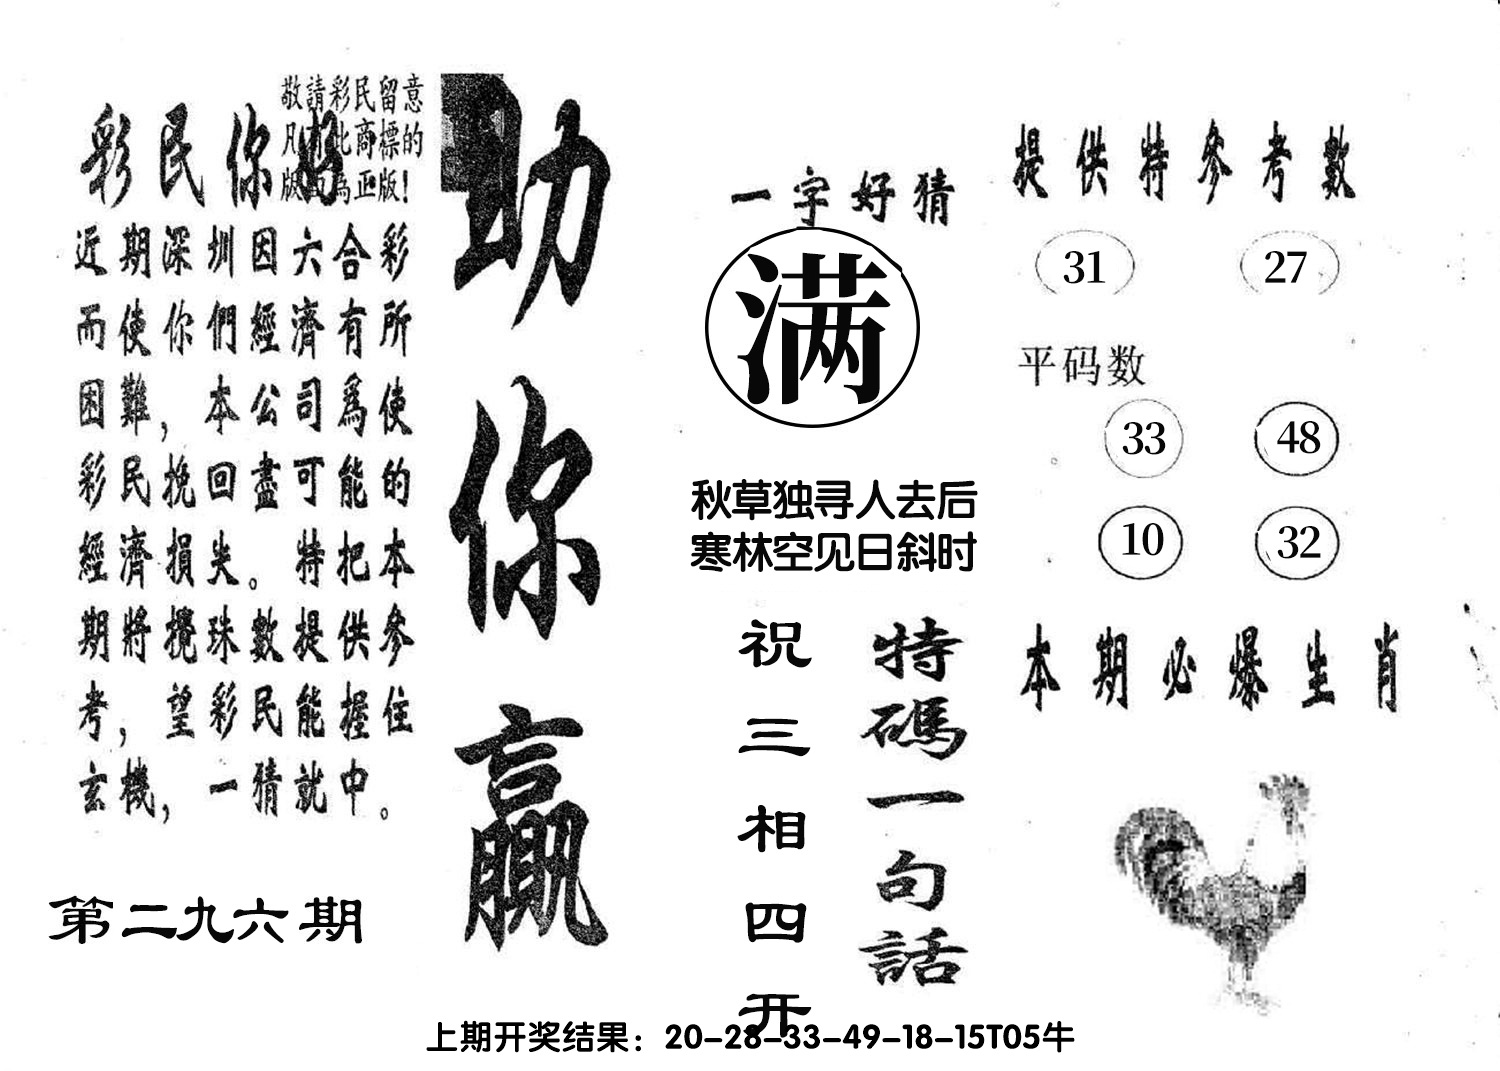 敬請彩民留意
凡有此商標的
版面為正版！
彩民你好
近期深圳因六合彩
而使你們經濟有所
困難，本公司爲使
彩民挽回盡可能的
經濟損失。特把本
期將攪珠數提供參
考，望彩民能握住
玄機，一猜就中。
第二九六期
助你贏
一字好猜
满
秋草独寻人去后
寒林空见日斜时
特碼一句話
祝三相四开
提供特參考數
31 27
平码数
33 48
10 32
本期必爆生肖
上期开奖结果：20-28-33-49-18-15T05牛